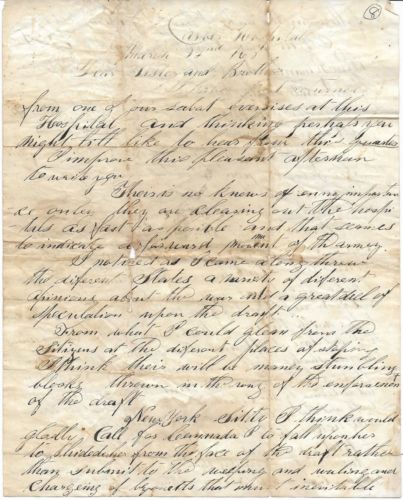 8
Carver Hospital
March
Dear Sister and Brother
from one of our sabat exersises at this
Hospital and thinking perhaps you
might still like to hear from this quarter
I improve this pleasant afternoon
to write you
Their is no knews of enny importan
ce onley they are clearing out the hospi
tals as fast as posible and that seemes
to indicate a forward movment of the armey
I noticed as I came along threw
the diferent States a variety of diferent
opinions about the war and a great deal of
Speculation upon the draft
From what I could glean from the
Sitizens at the diferent places of stoping
I think their will be maney stumbling
blocks thrown in the way of the enforsment
of the draft
New York Sitty I think would
gladly Call for Cannada to fall upon her
to hide her from the face of the draft rather
than submit to the weeping and wailing and
of bayonetts that must inevitable